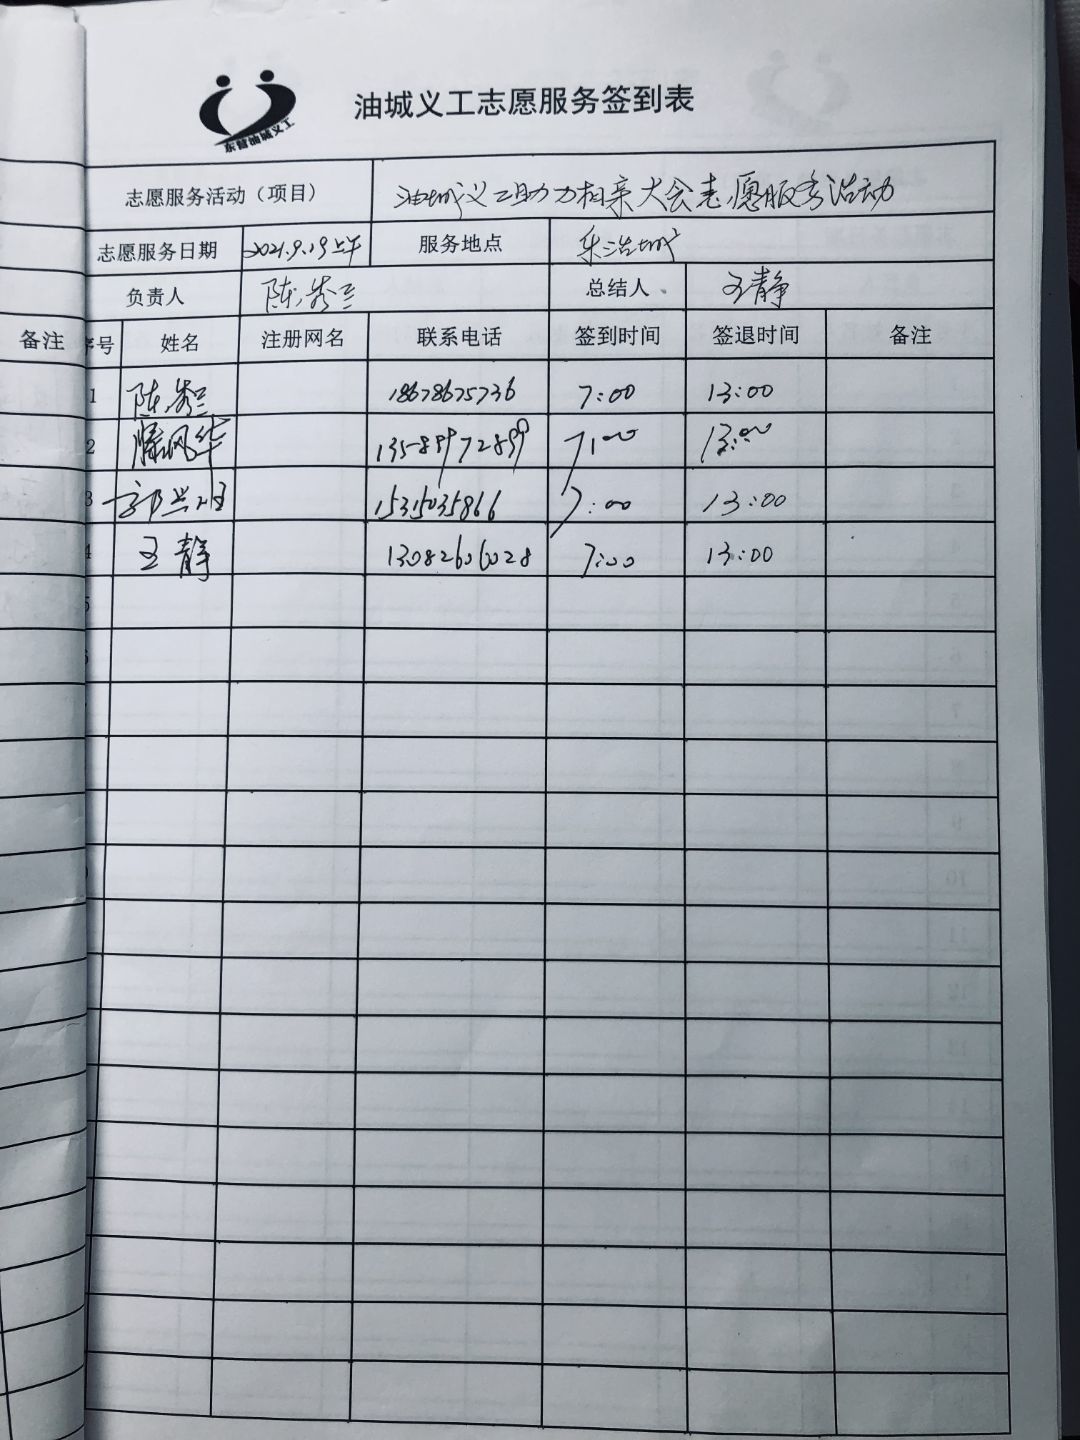 东营油城义工
油城义工志愿服务签到表
志愿服务活动（项目） 油城义工助力相亲大会志愿服务活动
志愿服务日期 2021.9.19上午 服务地点 乐活城
负责人 陈秀兰 总结人 王静
备注 序号 姓名 注册网名 联系电话 签到时间 签退时间 备注
1 陈秀兰 18678675736 7:00 13:00
2 滕凤华 13589972899 7:00 13:00
3 郭兴旺 15315035866 7:00 13:00
4 王静 13082606028 7:00 13:00
5